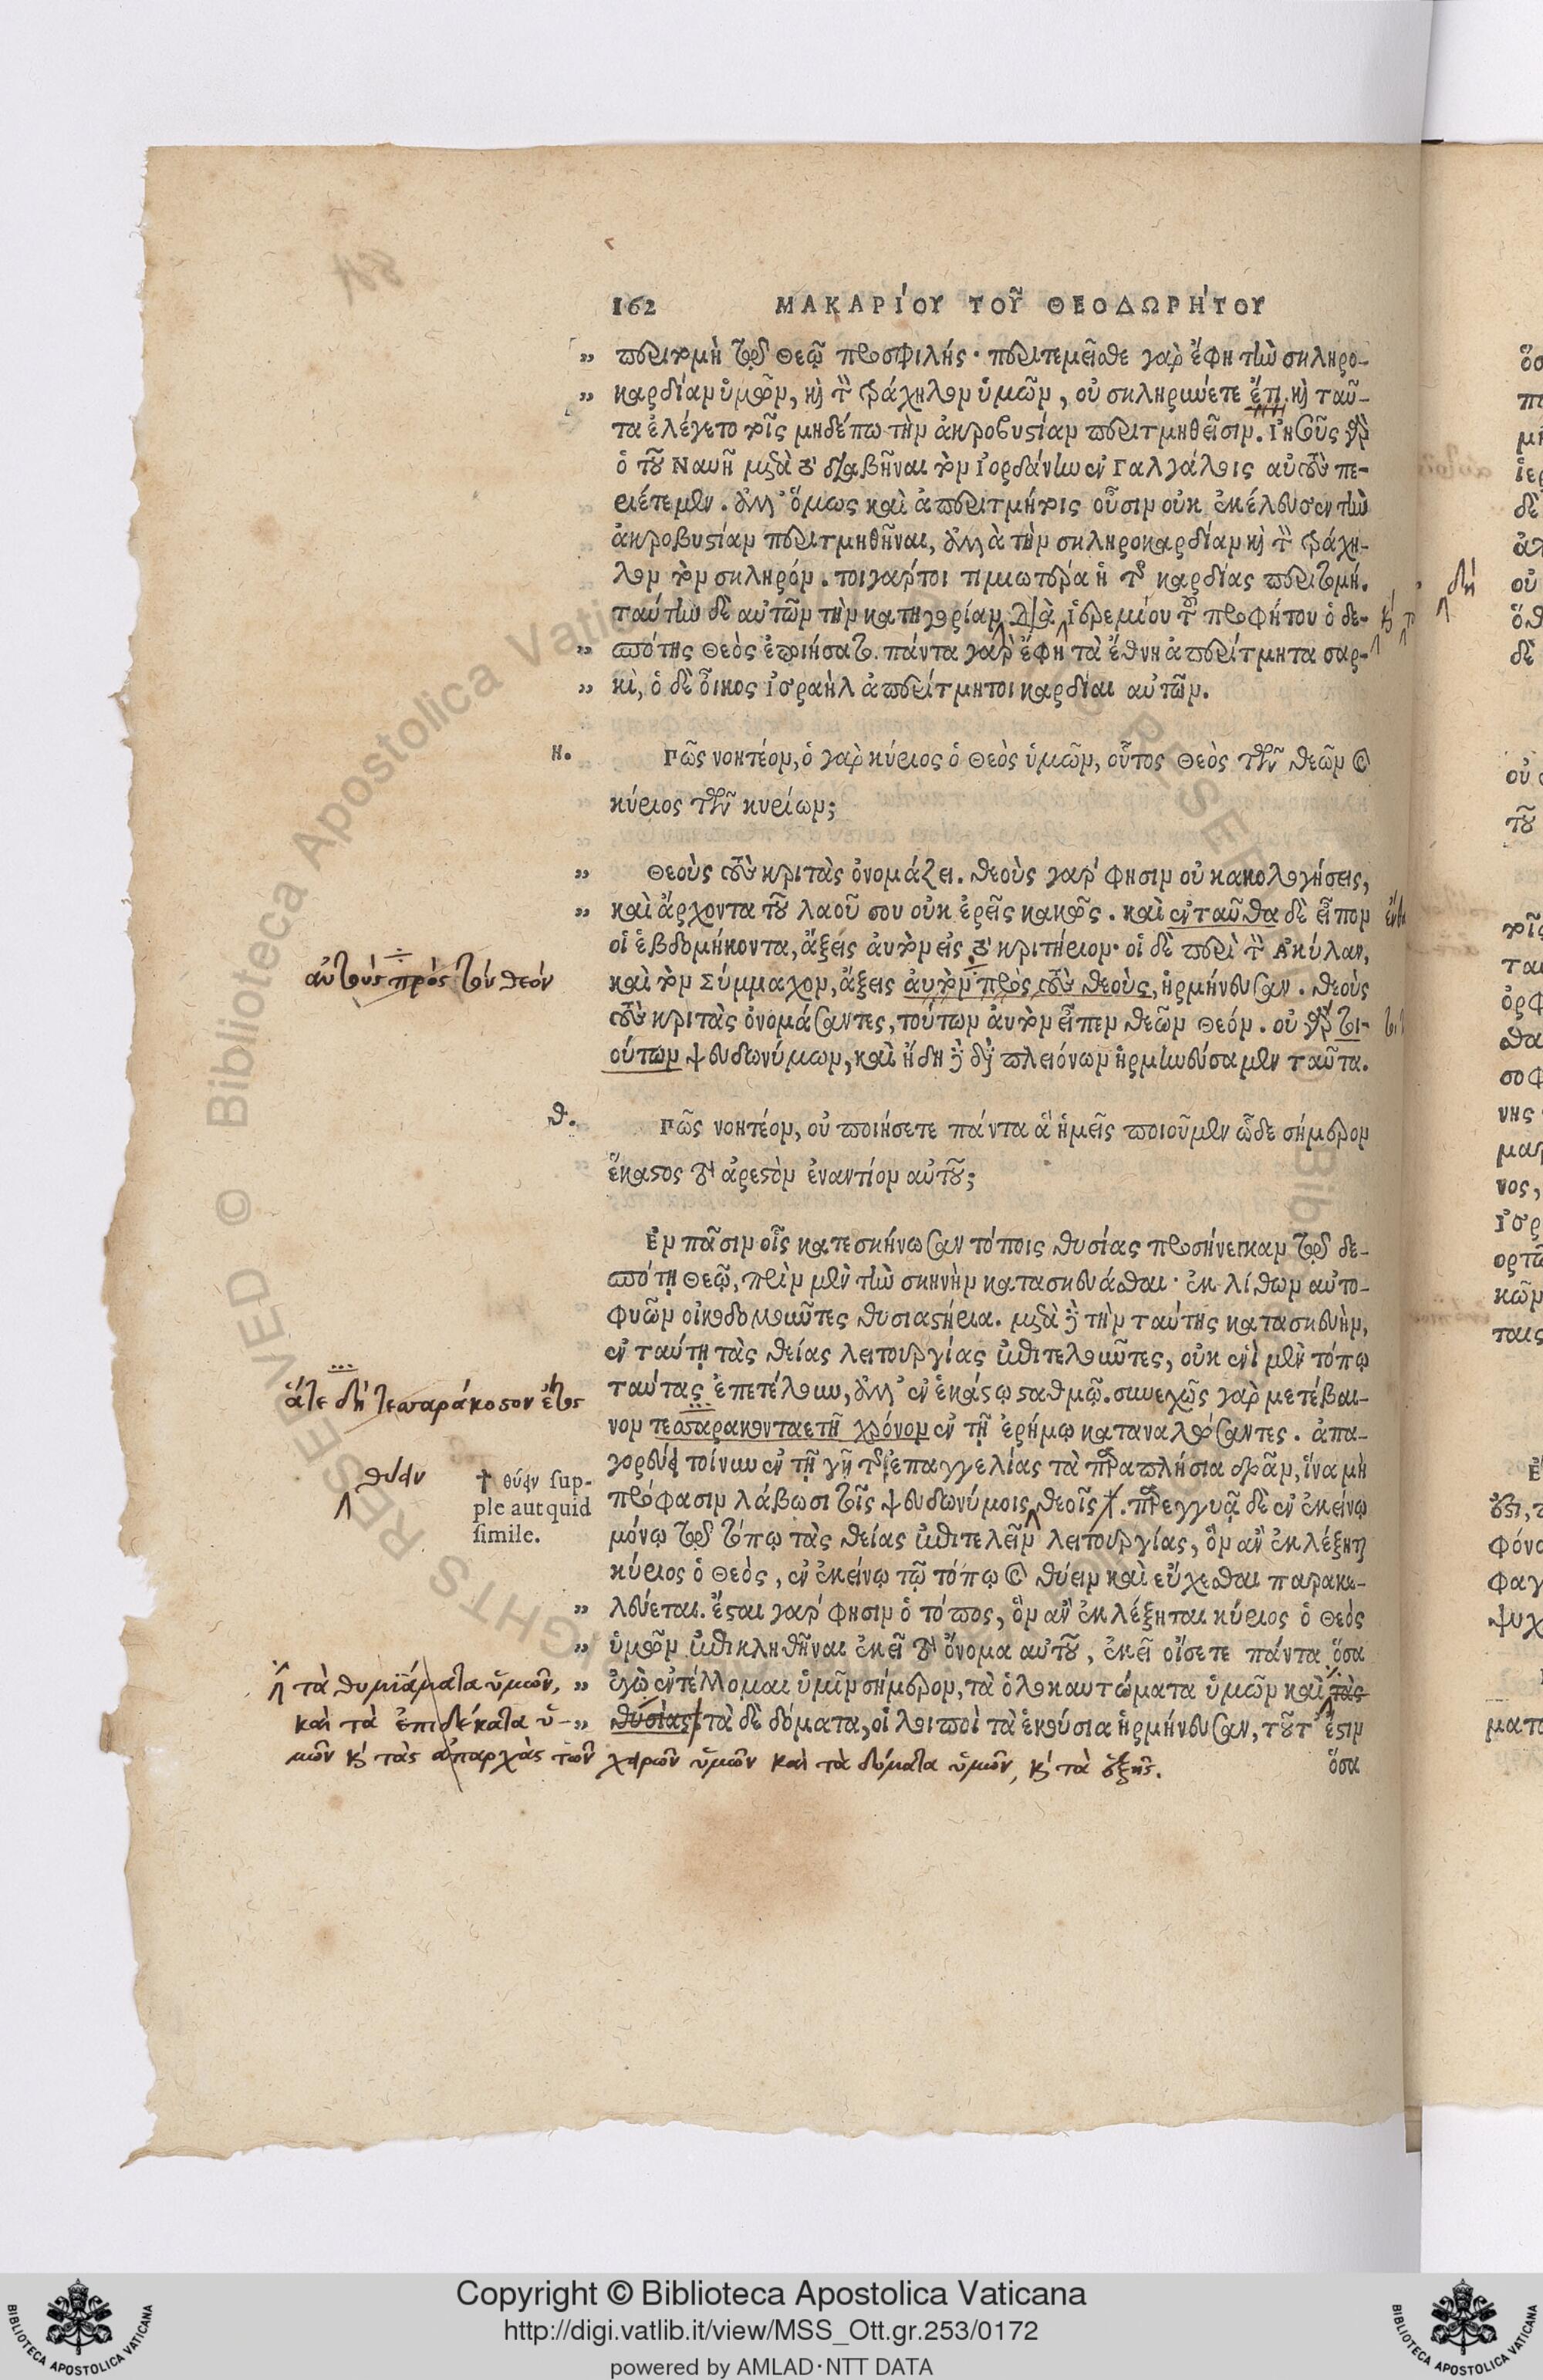 162 ΜΑΚΑΡΊΟΥ ΤΟΥ͂ ΘΕΟΔΩΡΉΤΟΥ
„ περιτομὴ τῷ Θεῷ προσφιλής· περιτεμεῖσθε γὰρ ἔφη τὴν σκληρο-
„ καρδίαν ὑμῶν, καὶ τὸν τράχηλον ὑμῶν, οὐ σκληρυνεῖτε ἔτι. καὶ ταῦ-
τα ἐλέγετο τοῖς μηδέπω τὴν ἀκροβυστίαν περιτμηθεῖσιν. Ἰησοῦς γὰρ
ὁ τοῦ Ναυῆ μετὰ τὸ διαβῆναι τὸν Ἰορδάνην ἐν Γαλγάλοις αὐτοὺς πε-
ριέτεμεν. ἀλλ' ὅμως καὶ ἀπεριτμήτοις οὖσιν οὐκ ἐκέλευσεν τὴν
ἀκροβυστίαν περιτμηθῆναι, ἀλλὰ τὴν σκληροκαρδίαν καὶ τὸν τράχη-
λον τὸν σκληρόν. τοιγάρτοι τιμιωτέρα ἡ τῆς καρδίας περιτομή.
ταύτην δὲ αὐτῶν τὴν κατηγορίαν διὰ Ἱερεμίου τοῦ προφήτου ὁ δε-
„ σπότης Θεὸς ἐποιήσατο. πάντα γὰρ ἔφη τὰ ἔθνη ἀπερίτμητα σαρ-
„ κὶ, ὁ δὲ οἶκος Ἰσραὴλ ἀπερίτμητοι καρδίαι αὐτῶν.
δὴ
η. Πῶς νοητέον, ὁ γὰρ κύριος ὁ Θεὸς ὑμῶν, οὗτος Θεὸς τῶν θεῶν καὶ
κύριος τῶν κυρίων;
„ Θεοὺς τοὺς κριτὰς ὀνομάζει. θεοὺς γάρ φησιν οὐ κακολογήσεις,
„ καὶ ἄρχοντα τοῦ λαοῦ σου οὐκ ἐρεῖς κακῶς. καὶ ἐνταῦθα δὲ εἶπον
οἱ ἑβδομήκοντα, ἄξεις αὐτὸν εἰς τὸ κριτήριον· οἱ δὲ περὶ τὸν Ἀκύλαν,
καὶ τὸν Σύμμαχον, ἄξεις αὐτὸν πρὸς τοὺς θεοὺς, ἡρμήνευσαν. θεοὺς
τοὺς κριτὰς ὀνομάσαντες, τούτων αὐτὸν εἶπεν θεῶν Θεόν. οὐ γὰρ τοι-
ούτων ψευδωνύμων, καὶ ἤδη καὶ διὰ πλειόνων ἡρμηνεύσαμεν ταῦτα.
αὐτοὺς πρὸς τὸν θεόν
θ. Πῶς νοητέον, οὐ ποιήσετε πάντα ἃ ἡμεῖς ποιοῦμεν ὧδε σήμερον
ἕκαστος τὸ ἀρεστὸν ἐναντίον αὐτοῦ;
Ἐν πᾶσιν οἷς κατεσκήνωσαν τόποις θυσίας προσήνεγκαν τῷ δε-
σπότῃ Θεῷ, πρὶν μὲν τὴν σκηνὴν κατασκευάσθαι· ἐκ λίθων αὐτο-
φυῶν οἰκοδομοῦντες θυσιαστήρια. μετὰ καὶ τὴν ταύτης κατασκευὴν,
ἐν ταύτῃ τὰς θείας λειτουργίας ἐπιτελοῦντες, οὐκ ἐνὶ μὲν τόπῳ
ταύτας ἐπετέλουν, ἀλλ' ἐν ἑκάστῳ σταθμῷ. συνεχῶς γὰρ μετέβαι-
νον τεσσαρακονταετῆ χρόνον ἐν τῇ ἐρήμῳ καταναλώσαντες. ἀπα-
γορεύει τοίνυν ἐν τῇ γῇ τῆς ἐπαγγελίας τὰ παραπλήσια δρᾶν, ἵνα μὴ
πρόφασιν λάβωσι τοῖς ψευδωνύμοις θεοῖς †. παρεγγυᾷ δὲ ἐν ἐκείνῳ
μόνῳ τῷ τόπῳ τὰς θείας ἐπιτελεῖν λειτουργίας, ὃν ἂν ἐκλέξηται
κύριος ὁ Θεὸς, ἐν ἐκείνῳ τῷ τόπῳ καὶ θύειν καὶ εὔχεσθαι παρακε-
„ λεύεται. ἔσται γάρ φησιν ὁ τόπος, ὃν ἂν ἐκλέξηται κύριος ὁ Θεὸς
„ ὑμῶν ἐπικληθῆναι ἐκεῖ τὸ ὄνομα αὐτοῦ, ἐκεῖ οἴσετε πάντα ὅσα
„ ἐγὼ ἐντέλλομαι ὑμῖν σήμερον, τὰ ὁλοκαυτώματα ὑμῶν καὶ τὰς
„ θυσίας, τὰ δὲ δόματα, οἱ λοιποὶ τὰ ἑκούσια ἡρμήνευσαν, τοῦτ' ἔστιν
ὅσα
ἅτε δὴ τεσσαράκοστον ἔτος
θύειν
† θύειν sup-
ple aut quid
simile.
τὰ θυμιάματα ὑμῶν,
καὶ τὰ ἐπιδέκατα ὑ-
μῶν καὶ τὰς ἀπαρχὰς τῶν χειρῶν ὑμῶν καὶ τὰ δόματα ὑμῶν, καὶ τὰ ἑξῆς.
Copyright © Biblioteca Apostolica Vaticana
http://digi.vatlib.it/view/MSS_Ott.gr.253/0172
powered by AMLAD·NTT DATA
BIBLIOTECA APOSTOLICA VATICANA
BIBLIOTECA APOSTOLICA VATICANA